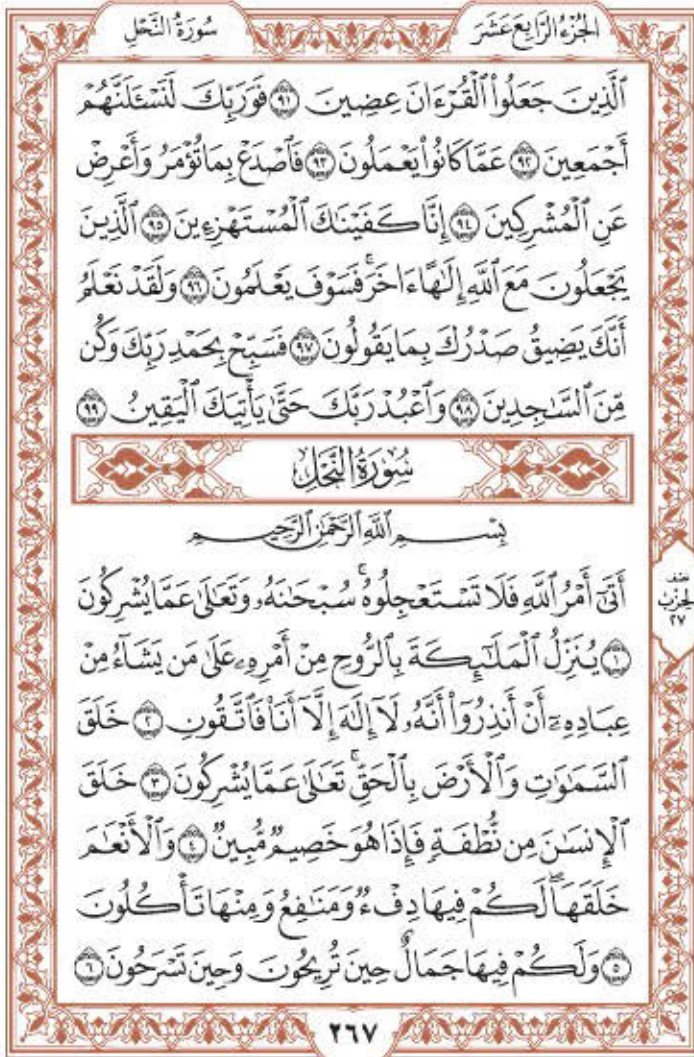 الجُزْءُ الرَّابِعَ عَشَرَ
سُورَةُ النَّحْلِ
ٱلَّذِينَ جَعَلُوا۟ ٱلْقُرْءَانَ عِضِينَ ٩١ فَوَرَبِّكَ لَنَسْـَٔلَنَّهُمْ
أَجْمَعِينَ ٩٢ عَمَّا كَانُوا۟ يَعْمَلُونَ ٩٣ فَٱصْدَعْ بِمَا تُؤْمَرُ وَأَعْرِضْ
عَنِ ٱلْمُشْرِكِينَ ٩٤ إِنَّا كَفَيْنَٰكَ ٱلْمُسْتَهْزِءِينَ ٩٥ ٱلَّذِينَ
يَجْعَلُونَ مَعَ ٱللَّهِ إِلَٰهًا ءَاخَرَۚ فَسَوْفَ يَعْلَمُونَ ٩٦ وَلَقَدْ نَعْلَمُ
أَنَّكَ يَضِيقُ صَدْرُكَ بِمَا يَقُولُونَ ٩٧ فَسَبِّحْ بِحَمْدِ رَبِّكَ وَكُن
مِّنَ ٱلسَّٰجِدِينَ ٩٨ وَٱعْبُدْ رَبَّكَ حَتَّىٰ يَأْتِيَكَ ٱلْيَقِينُ ٩٩
سُورَةُ النَّحْلِ
بِسْمِ ٱللَّهِ ٱلرَّحْمَٰنِ ٱلرَّحِيمِ
أَتَىٰٓ أَمْرُ ٱللَّهِ فَلَا تَسْتَعْجِلُوهُۚ سُبْحَٰنَهُۥ وَتَعَٰلَىٰ عَمَّا يُشْرِكُونَ
١ يُنَزِّلُ ٱلْمَلَٰٓئِكَةَ بِٱلرُّوحِ مِنْ أَمْرِهِۦ عَلَىٰ مَن يَشَآءُ مِنْ
عِبَادِهِۦٓ أَنْ أَنذِرُوٓا۟ أَنَّهُۥ لَآ إِلَٰهَ إِلَّآ أَنَا۠ فَٱتَّقُونِ ٢ خَلَقَ
ٱلسَّمَٰوَٰتِ وَٱلْأَرْضَ بِٱلْحَقِّۚ تَعَٰلَىٰ عَمَّا يُشْرِكُونَ ٣ خَلَقَ
ٱلْإِنسَٰنَ مِن نُّطْفَةٍ فَإِذَا هُوَ خَصِيمٌ مُّبِينٌ ٤ وَٱلْأَنْعَٰمَ
خَلَقَهَاۖ لَكُمْ فِيهَا دِفْءٌ وَمَنَٰفِعُ وَمِنْهَا تَأْكُلُونَ
٥ وَلَكُمْ فِيهَا جَمَالٌ حِينَ تُرِيحُونَ وَحِينَ تَسْرَحُونَ ٦
نصف
الحزب
٢٧
٢٦٧